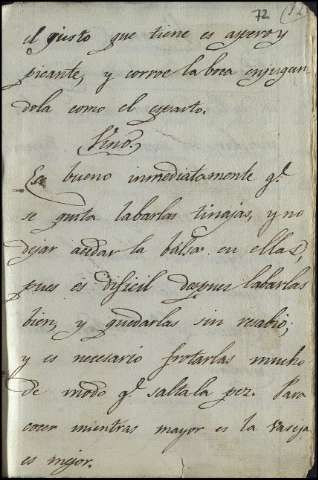 72
el gusto que tiene es aspero y
picante, y corroe la boca enjugan
dola como el esparto.
Vino.
Es bueno inmediatamente q.e
se quita labarlas tinajas, y no
dejar acedar la balsa en ellas,
pues es dificil despues labarlas
bien, y quedarlas sin resabio;
y es necesario frotarlas mucho
de modo q.e salta la pez. Para
cocer mientras mayor es la vasija
es mejor.